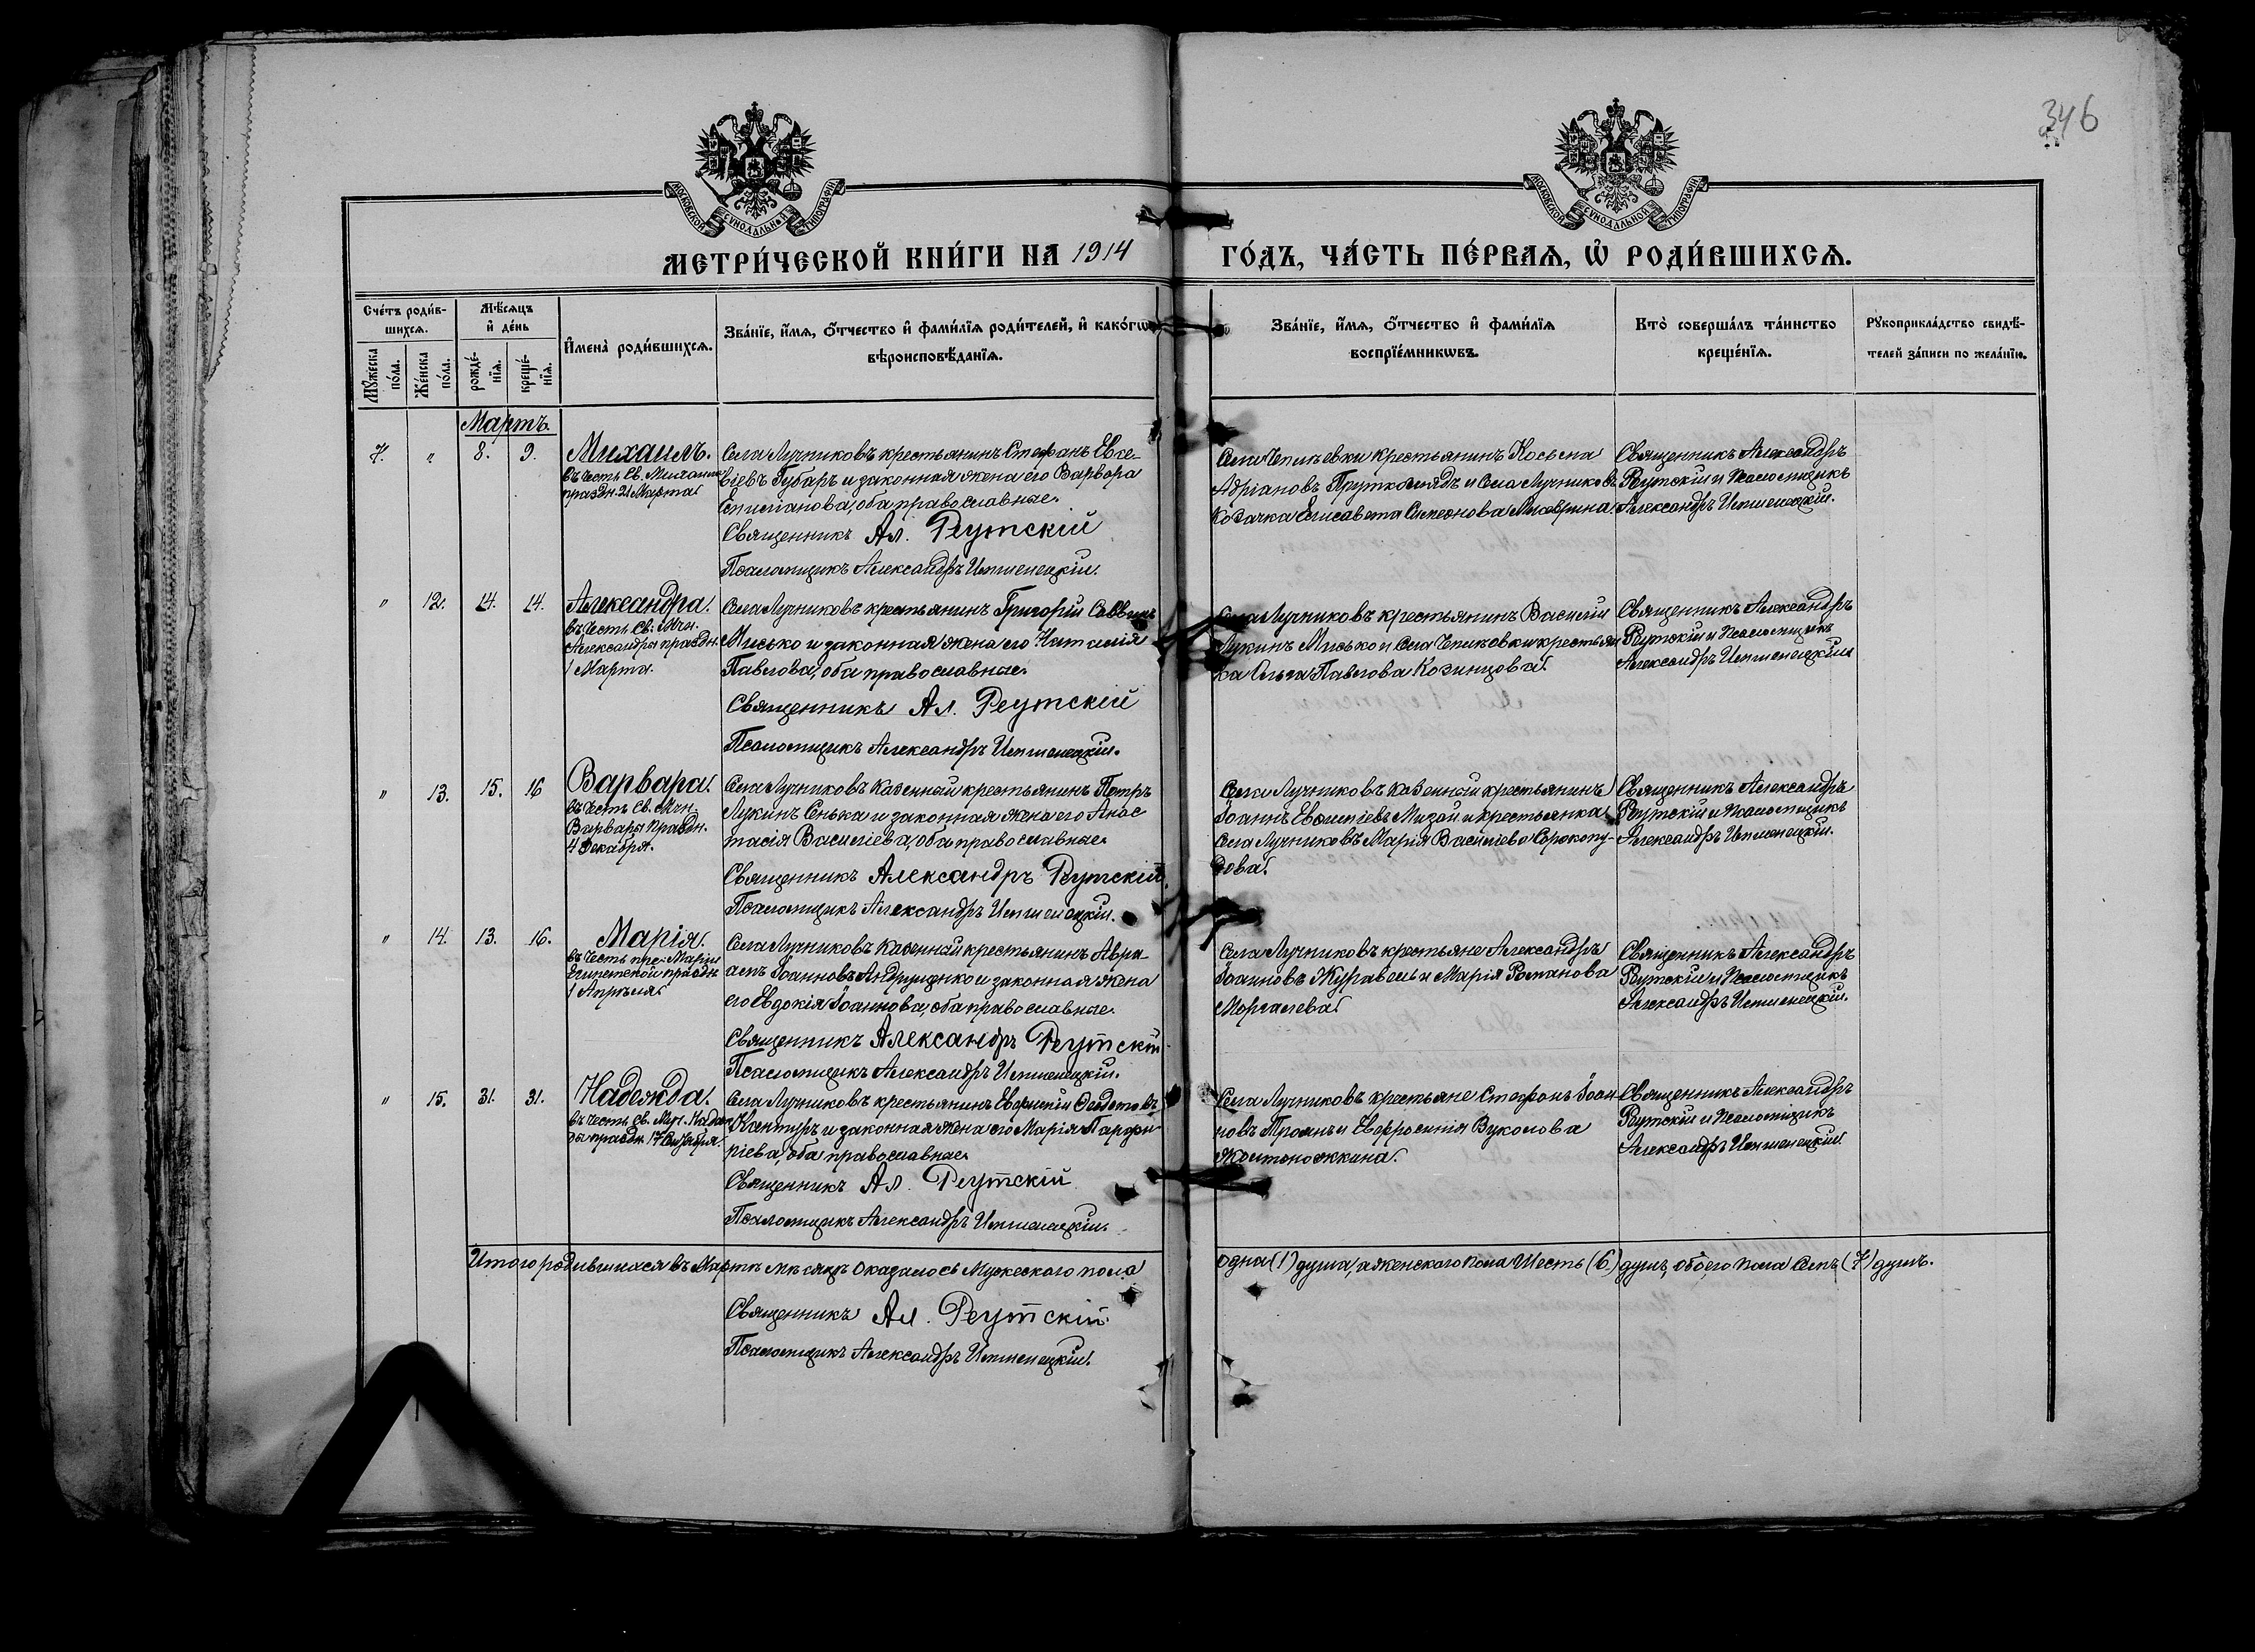 346
МОСКОВСКОЙ СѴНОДАЛЬНОЙ ТИПОГРАФІИ
МОСКОВСКОЙ СѴНОДАЛЬНОЙ ТИПОГРАФІИ
МЕТРИ́ЧЕСКОЙ КНИ́ГИ НА 1914 ГО́ДЪ, ЧА́СТЬ ПЕ́РВАѦ, Ѡ҆ РОДИ́ВШИХСѦ.
Сче́тъ роди́в-
шихсѧ.
Мꙋ́жеска
по́ла.
Же́нска
по́ла.
Мѣ́сѧцъ
и҆ де́нь
рожде́-
нїѧ.
креще́-
нїѧ.
И҆мена̀ роди́вшихсѧ.
Зва́нїе, и҆́мѧ, ѻ҆́тчество и҆ фами́лїѧ роди́телей, и҆ како́гѡ
вѣроисповѣ́данїѧ.
Зва́нїе, и҆́мѧ, ѻ҆́тчество и҆ фами́лїѧ
воспрїе́мникѡвъ.
Кто̀ соверша́лъ та́инство
креще́нїѧ.
Рꙋкоприкла́дство свидѣ́-
телей за́писи по жела́нїю.
Мартъ.
7. " 8. 9. Михаилъ.
въ честь Св. Михаила
праздн. 21 Марта
Села Лучниковъ крестьянинъ Стефанъ Евсе-
віевъ Губарь и законная жена его Варвара
Епифанова, оба православные.
Священникъ Ал. Реутскій
Псаломщикъ Александръ
Села Чепиевки крестьянинъ Косьма
Адріановъ и Села Лучниковъ
Козачка Елисавета Симеонова
Священникъ Александръ
Реутскій и Псаломщикъ
Александръ
" 12. 14. 14. Александра.
въ честь Св. Мчн.
Александры праздн.
1 Марта.
Села Лучниковъ крестьянинъ Григорій Саввинъ
Мисько и законная жена его Наталія
Павлова, оба православные.
Священникъ Ал. Реутскій
Псаломщикъ Александръ
Села Лучниковъ крестьянинъ Василій
Лукинъ Мисько и Села Чепиковки крестьян
ка Ольга Павлова Козинцова.
Священникъ Александръ
Реутскій и Псаломщикъ
Александръ
" 13. 15. 16 Варвара.
въ честь Св. Мчн.
Варвары праздн.
4 Декабря.
Села Лучниковъ казенный крестьянинъ Петръ
Лукинъ Сенька и законная жена его Анас
тасія Василіева, оба православные.
Священникъ Александръ Реутскій.
Псаломщикъ Александръ
Села Лучниковъ казенный крестьянинъ
Іоаннъ Евфиміевъ Мизой и крестьянка
Села Лучниковъ Марія Василіева Сорокопу-
дова.
Священникъ Александръ
Реутскій и Псаломщикъ
Александръ
" 14. 13. 16. Марія.
въ честь пре. Маріи
Египетской праздн
1 Апрѣля.
Села Лучниковъ казенный крестьянинъ Авра-
амъ Іоанновъ Андрущенко и законная жена
его Евдокія Іоаннова, оба православные.
Священникъ Александръ Реутскій
Псаломщикъ Александръ
Села Лучниковъ крестьяне Александръ
Іоанновъ Журавель и Марія Романова
Моргалева
Священникъ Александръ
Реутскій и Псаломщикъ
Александръ
" 15. 31. 31. Надежда.
въ честь Св. Муч. Надеж
ды праздн. 17 Сентября
Села Лучниковъ крестьянинъ Евфимій Феодотовъ
Кантуръ и законная жена его Марія Парфи
ріева, оба православные.
Священникъ Ал. Реутскій
Псаломщикъ Александръ
Села Лучниковъ крестьяне Стефанъ Іоан
новъ Троянъ и Евфросинія Вуколова
Желтоножкина.
Священникъ Александръ
Реутскій и Псаломщикъ
Александръ
Итого родившихся въ Мартѣ мѣсяцѣ оказалось Мужескаго пола одна (1) душа, а женскаго пола Шесть (6) душъ, обоего пола Семь (7) душъ.
Священникъ Ал. Реутскій.
Псаломщикъ Александръ